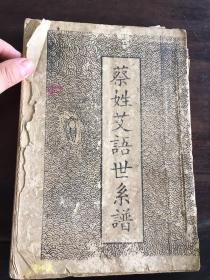 蔡姓艾語世系譜